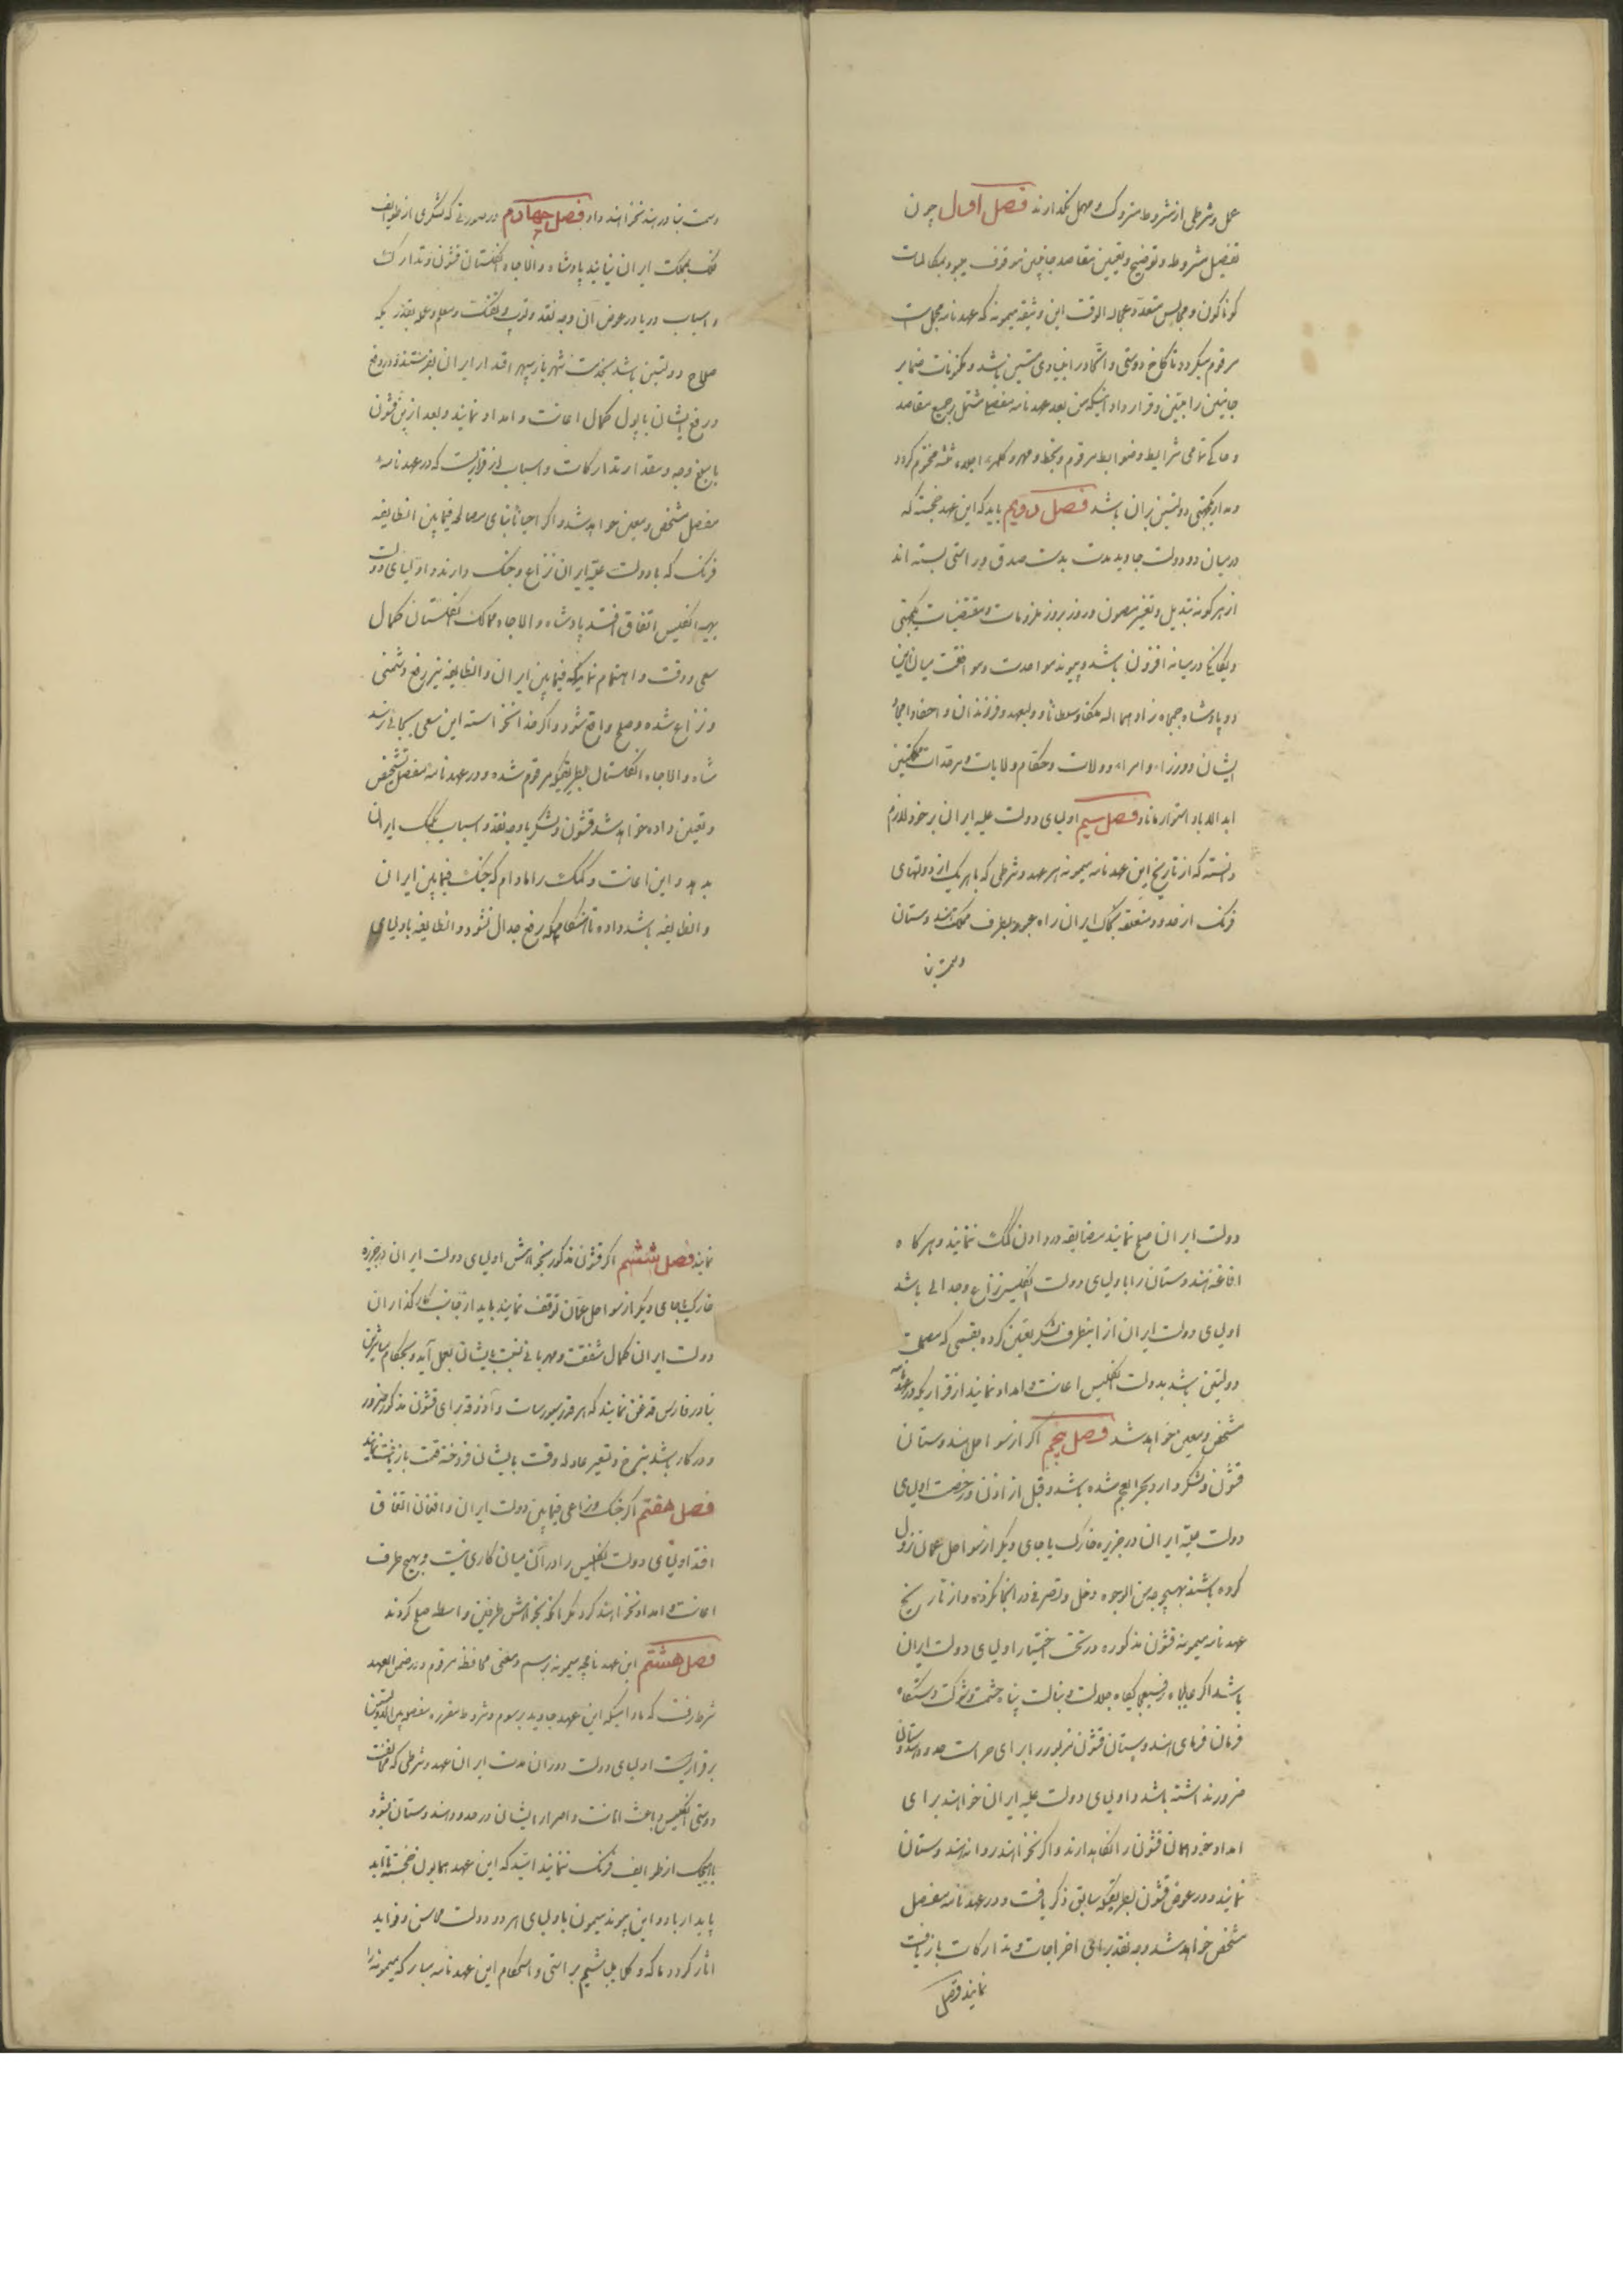 عمل و شرطی از شروط متروک و مهمل نگذارند فصل اول چون
تفصیل شروط و توضیح و تعیین مقاصد جانبین موقوف میبود بمکالمات
کوناکون و مجالس متعدده عجالة الوقت این وثیقه میمونه که عهدنامه مجمل است
مرقوم میکردد تا کاخ دوستی و اتحاد را بنیادی متین باشد و مکنونات ضمایر
جانبین را مبین و قرارداد اینکه من بعد عهدنامه مفصل مشتمل بر جمیع مقاصد
و حاکی تمامی شرایط و ضوابط مرقوم و بخط و مهر وکلای اجلاء ثلثه مختوم کردد
و مدار یکجهتی دولتین بران باشد فصل دویم باید که این عهد خجسته که
در میان دو دولت جاوید مدت بدست صدق و راستی بسته اند
از هر کونه تبدیل و تغییر مصون و روز بروز ملزومات و مقتضیات یکجهتی
و یکانکی در میانه افزون باشد و پیوند مواحدت و موافقت میان این
دو پادشاه جمجاه زاد الله ملکها و سلطانها و ولیعهد و فرزندان و احفاد امجاد
ایشان و وزراء و امراء و ولات و حکام ولایات و سرحدات مملکتین
ابد الدهر استوار ماناد فصل سیم اولیای دولت علیه ایران بر خود لازم
دانسته که از تاریخ این عهدنامه میمونه هر عهد و شرطی که با هر یک از دولتهای
فرنک از حدود متعلقه بخاک ایران راه عبور بطرف مملکت هندوستان
و سمت بنا
و سمت بنادر هند نخواهند داد فصل چهارم در صورتی که لشکری از طوایف
فرنک بمملکت ایران بیایند پادشاه والاجاه انکلستان قشون و تدارک
و اسباب دریا در عوض آن وجه نقد و توپ و تفنک و معلم و عمله بقدریکه
صلاح دولتین باشد بخدمت شهریار سپهر اقتدار ایران بفرستند و در دفع
و رفع ایشان با پول کمال اعانت و امداد نمایند و بعد ازین قشون
یا مبلغ وجه و مقدار تدارکات و اسباب از قراریست که در عهدنامه
مفصل مشخص و معین خواهد شد و اکر احیانا بنای مصالحه فیمابین انطایفه
فرنک که با دولت علیه ایران نزاع و جنک دارند و اولیای دولت
بهیه انکلیس اتفاق افتد پادشاه والاجاه ممالک انکلستان کمال
سعی و دقت و اهتمام نماید که فیمابین ایران و انطایفه نیز رفع دشمنی
و نزاع شده و صلح واقع شود و اکر خدا نخواسته این سعی بجائی نرسد
شاه والاجاه انکلستان بطریقیکه مرقوم شده و در عهدنامه مفصل مشخص
و تعیین داده خواهد شد قشون و لشکر یا وجه نقد و اسباب بکمک ایران
بدهد و این اعانت و کمک را مادام که جنک فیمابین ایران
و انطایفه باشد داده تا هنکامیکه رفع جدال نشود و انطایفه با اولیای
دولت ایران صلح نمایند مضایقه در دادن کمک ننمایند و هر کاه
افاغنه هندوستان را با اولیای دولت انکلیس نزاع و جدالی باشد
اولیای دولت ایران از اینطرف لشکر تعیین کرده بقسمی که مصلحت
دولتین باشد بدولت انکلیس اعانت و امداد نمایند از قراریکه در عهدنامه
مشخص و معین خواهد شد فصل پنجم اکر از سواحل هندوستان
قشون و لشکر وارد بحر العجم شده باشند و قبل از اذن و رخصت اولیای
دولت علیه ایران در جزیره خارک یا جای دیکر از سواحل عمان نزول
کرده باشند بهیچوجه من الوجوه دخل و تصرفی در انجا نکرده و از تاریخ
عهدنامه میمونه قشون مذکوره در تحت اختیار اولیای دولت ایران
باشد اکر عالیجاه رفیع جایکاه جلالت و نبالت پناه حشمت و شوکت دستکاه
فرمان فرمای هندوستان قشون مزبور را برای حراست حدود هندوستان
ضرور نداشته باشد و اولیای دولت علیه ایران خواهند برای
امداد خود همان قشون را نکاهدارند و اکر نخواهند روانه هندوستان
نمایند و در عوض قشون بطریقیکه سابق ذکر یافت و در عهدنامه مفصل
مشخص خواهد شد وجه نقد برای اخراجات و تدارکات بازیافت
نمایند فصل
نمایند فصل ششم اکر قشون مذکور بخواهش اولیای دولت ایران در جزیره
خارک یا جای دیکر از سواحل عمان توقف نمایند باید از جانب کارکذاران
دولت ایران کمال شفقت و مهربانی نسبت بایشان بعمل آید و بحکام و مباشرین
بنادر فارس قدغن نمایند که هر قدر سیورسات و آذوقه برای قشون مذکور ضرور
و در کار باشد بنرخ و تسعیر عادله وقت بایشان فروخته قیمت بازیافت نمایند
فصل هفتم اکر جنک و نزاعی فیمابین دولت ایران و افغان اتفاق
افتد اولیای دولت انکلیس را در آن میان کاری نیست و بهیچ طرف
اعانت و امداد نخواهند کرد مکر انکه بخواهش طرفین واسطه صلح کردند
فصل هشتم این عهدنامچه میمونه برسم و معنی محافظه مرقوم و در ضمن العهد
شرط رفت که مادامیکه این عهد جاوید برسوم و شروط مقرره مفصله بین الدولتین
برقرار است اولیای دولت دوران مدت ایران عهد و شرطی که مخالفت
دوستی انکلیس و باعث اهانت و اضرار ایشان در حدود هندوستان بشود
با هیچیک از طوایف فرنک ننمایند امید که این عهد همایون خجسته تا ابد
پایدار باد و این پیوند میمون با اولیای هر دو دولت محاسن و فواید
اثار کردد ما که وکلا میباشیم براستی و استحکام این عهدنامه مبارکه میمونه را